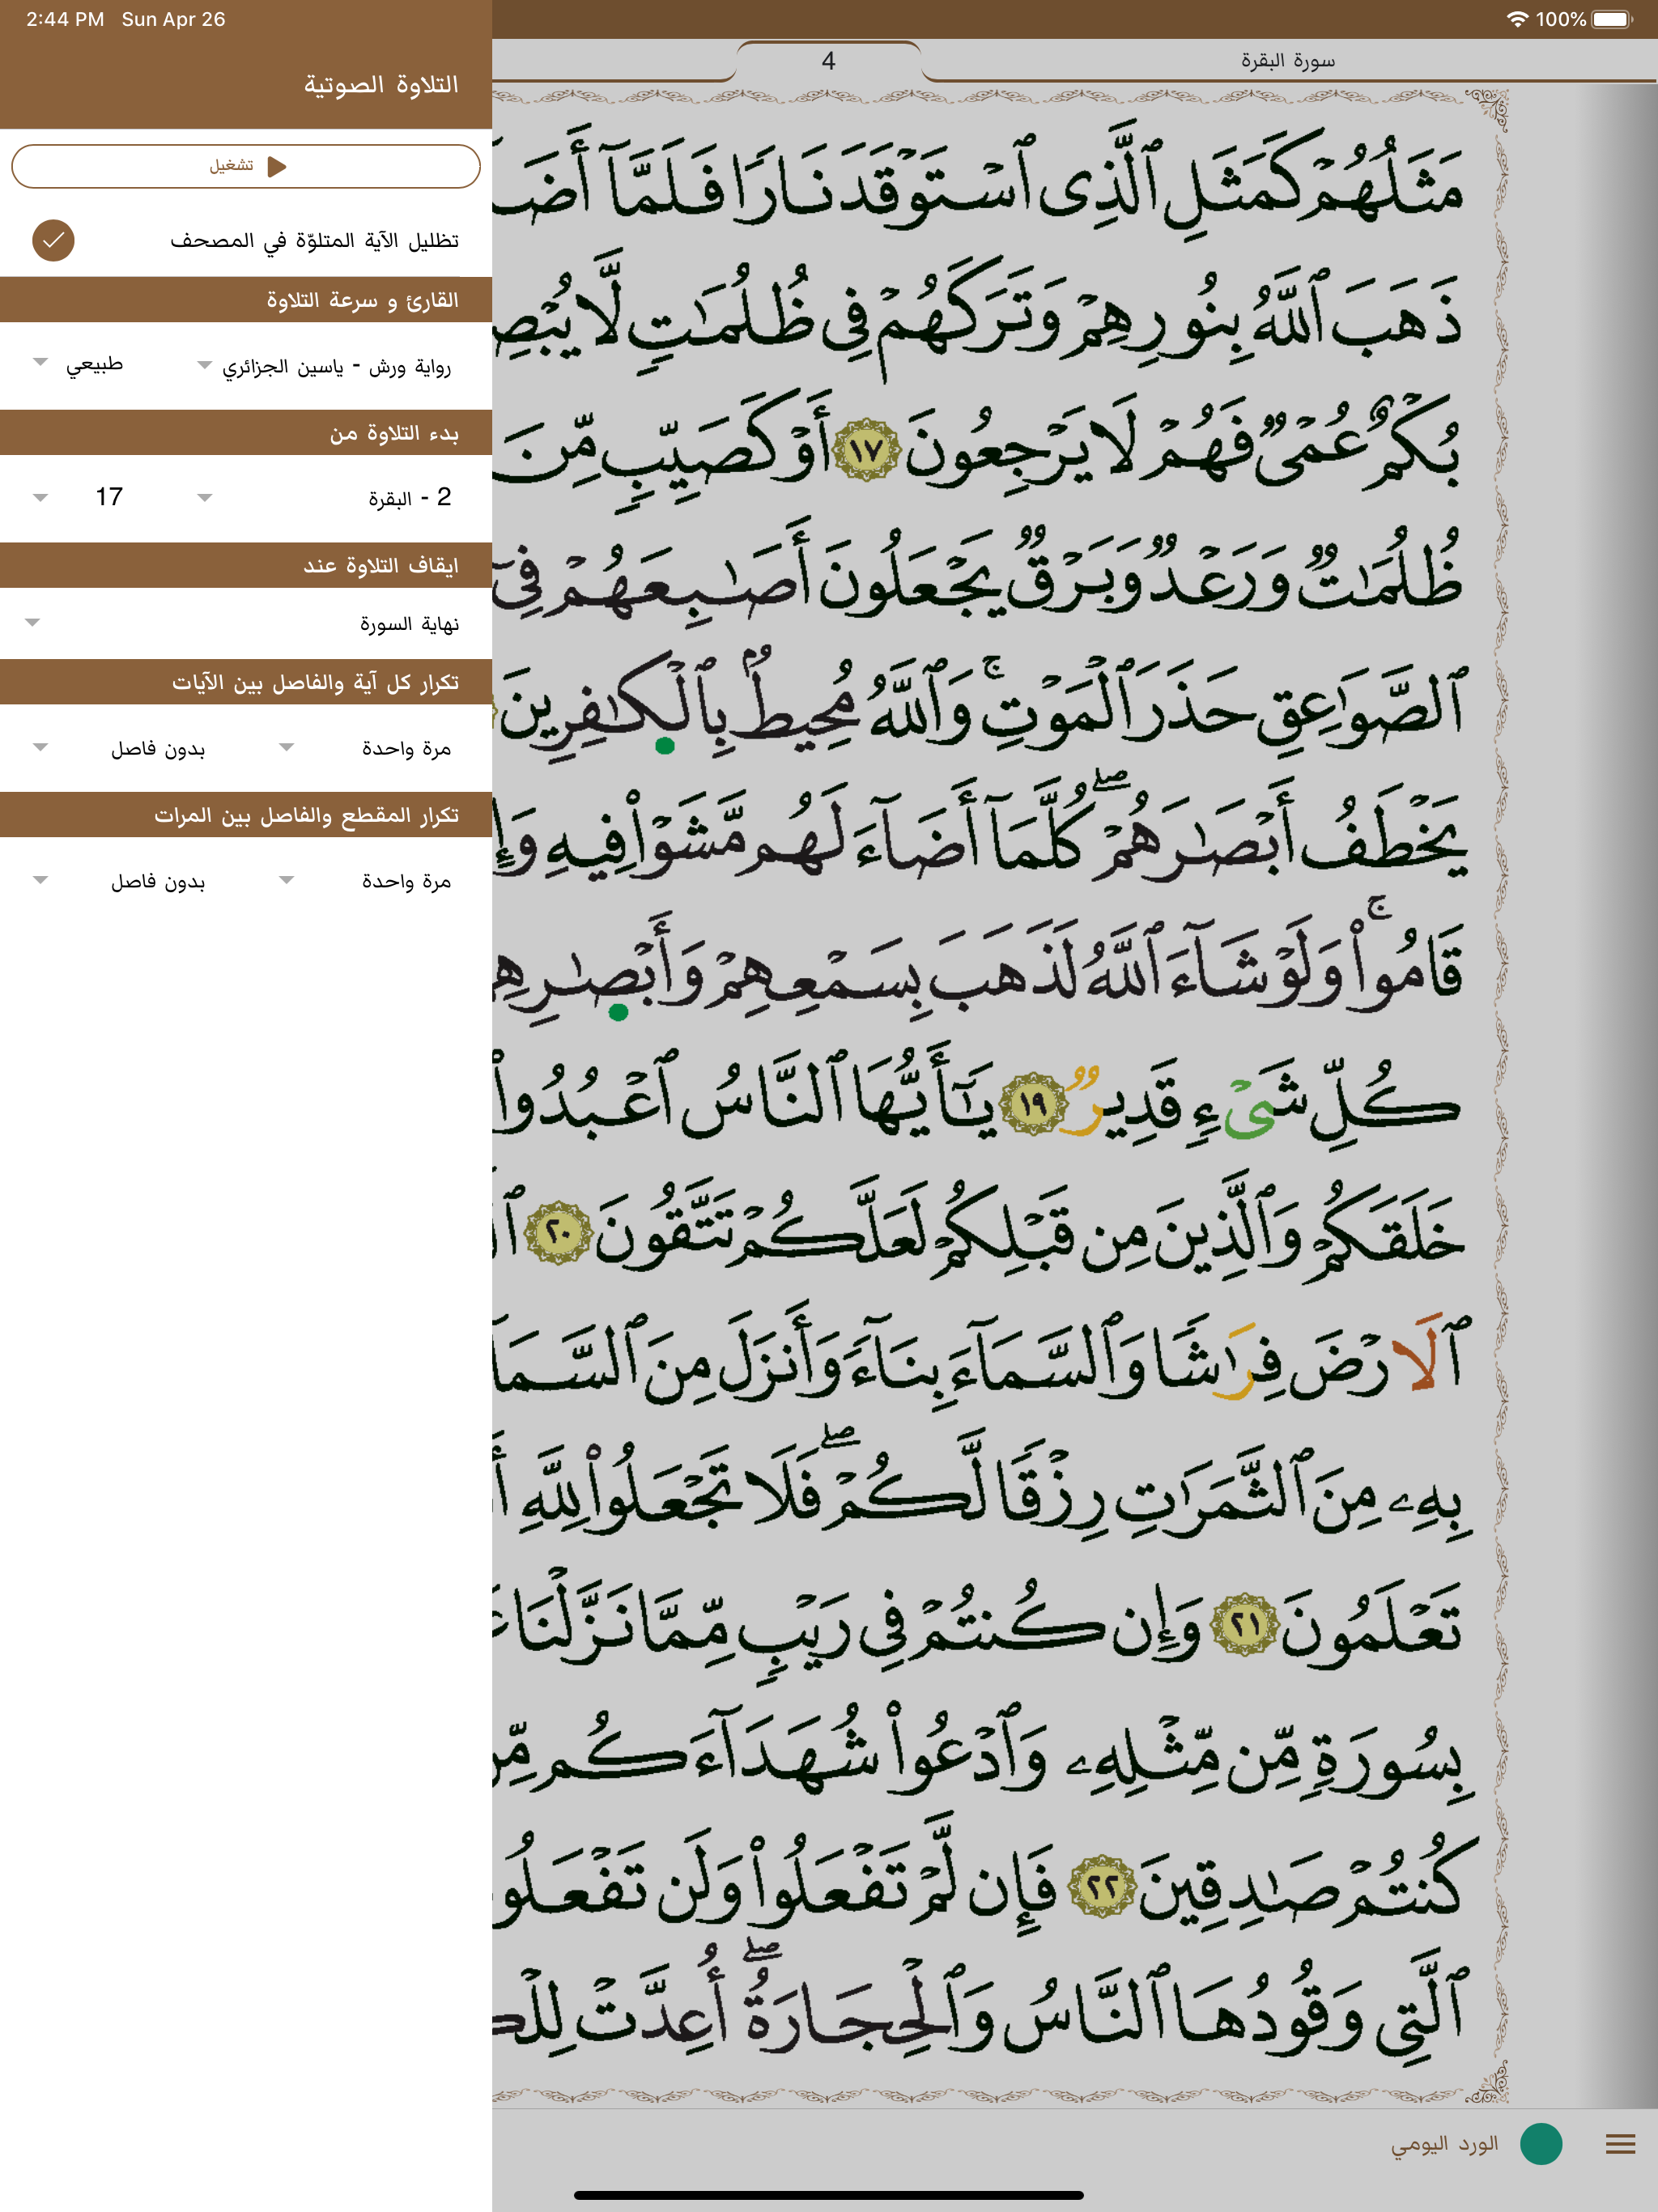 2:44 PM Sun Apr 26
100%
التلاوة الصوتية
تشغيل
تظليل الآية المتلوّة في المصحف
القارئ و سرعة التلاوة
رواية ورش - ياسين الجزائري
طبيعي
بدء التلاوة من
2 - البقرة
17
ايقاف التلاوة عند
نهاية السورة
تكرار كل آية والفاصل بين الآيات
مرة واحدة
بدون فاصل
تكرار المقطع والفاصل بين المرات
مرة واحدة
بدون فاصل
سورة البقرة
4
مَثَلُهُمْ كَمَثَلِ اِ۬لَّذِے اِ۪سْتَوْقَدَ نَاراٗ فَلَمَّآ
ذَهَبَ اَ۬للَّهُ بِنُورِهِمْ وَتَرَكَهُمْ فِے ظُلُمَٰتٖ لَّا
بُكْمٌ عُمْيٞ فَهُمْ لَا يَرْجِعُونَ ١٧ أَوْ كَصَيِّبٖ مِّنَ
ظُلُمَٰتٞ وَرَعْدٞ وَبَرْقٞ يَجْعَلُونَ أَصَٰبِعَهُمْ فِےٓ
اَ۬لصَّوَٰعِقِ حَذَرَ اَ۬لْمَوْتِۚ وَاللَّهُ مُحِيطُۢ بِالْكٰ۪فِرِينَ
يَخْطَفُ أَبْصَٰرَهُمْۖ كُلَّمَآ أَضَآءَ لَهُم مَّشَوْاْ فِيهِ
قَامُواْۚ وَلَوْ شَآءَ اَ۬للَّهُ لَذَهَبَ بِسَمْعِهِمْ وَأَبْصٰ۪رِهِ
كُلِّ شَےْءٖ قَدِيرٞ ١٩ يَٰٓأَيُّهَا اَ۬لنَّاسُ اُ۟عْبُدُواْ
خَلَقَكُمْ وَالَّذِينَ مِن قَبْلِكُمْ لَعَلَّكُمْ تَتَّقُونَ ٢٠
اَ۬لَارْضَ فِرَٰشاٗ وَالسَّمَآءَ بِنَآءٗ وَأَنزَلَ مِنَ اَ۬لسَّمَا
بِهِۦ مِنَ اَ۬لثَّمَرَٰتِ رِزْقاٗ لَّكُمْۖ فَلَا تَجْعَلُواْ لِلهِ
تَعْلَمُونَ ٢١ وَإِن كُنتُمْ فِے رَيْبٖ مِّمَّا نَزَّلْنَا
بِسُورَةٖ مِّن مِّثْلِهِۦ وَادْعُواْ شُهَدَآءَكُم
كُنتُمْ صَٰدِقِينَ ٢٢ فَإِن لَّمْ تَفْعَلُواْ وَلَن تَفْعَلُو
اَ۬لَّتِے وَقُودُهَا اَ۬لنَّاسُ وَالْحِجَارَةُۖ أُعِدَّتْ
الورد اليومي